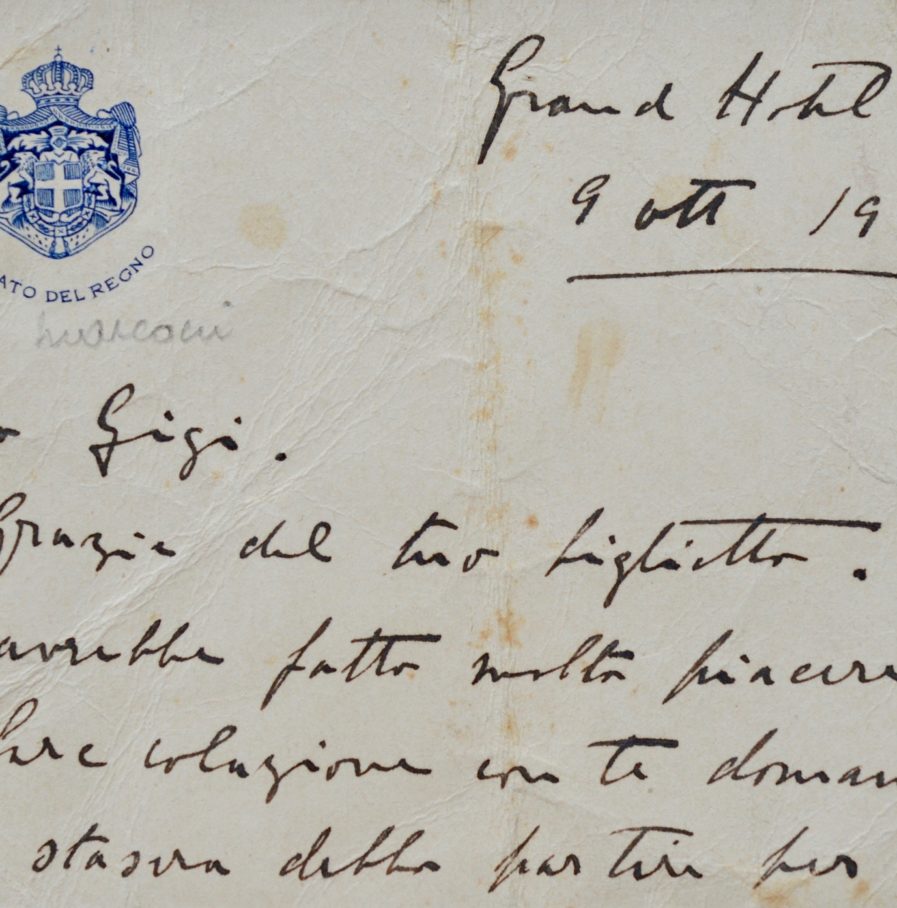 Grand Hotel
9 ott 19
ATO DEL REGNO
Marconi
Gigi.
Grazie del tuo biglietto.
avrebbe fatto molto piacere
fare colazione con te doman
stasera debbo partire per